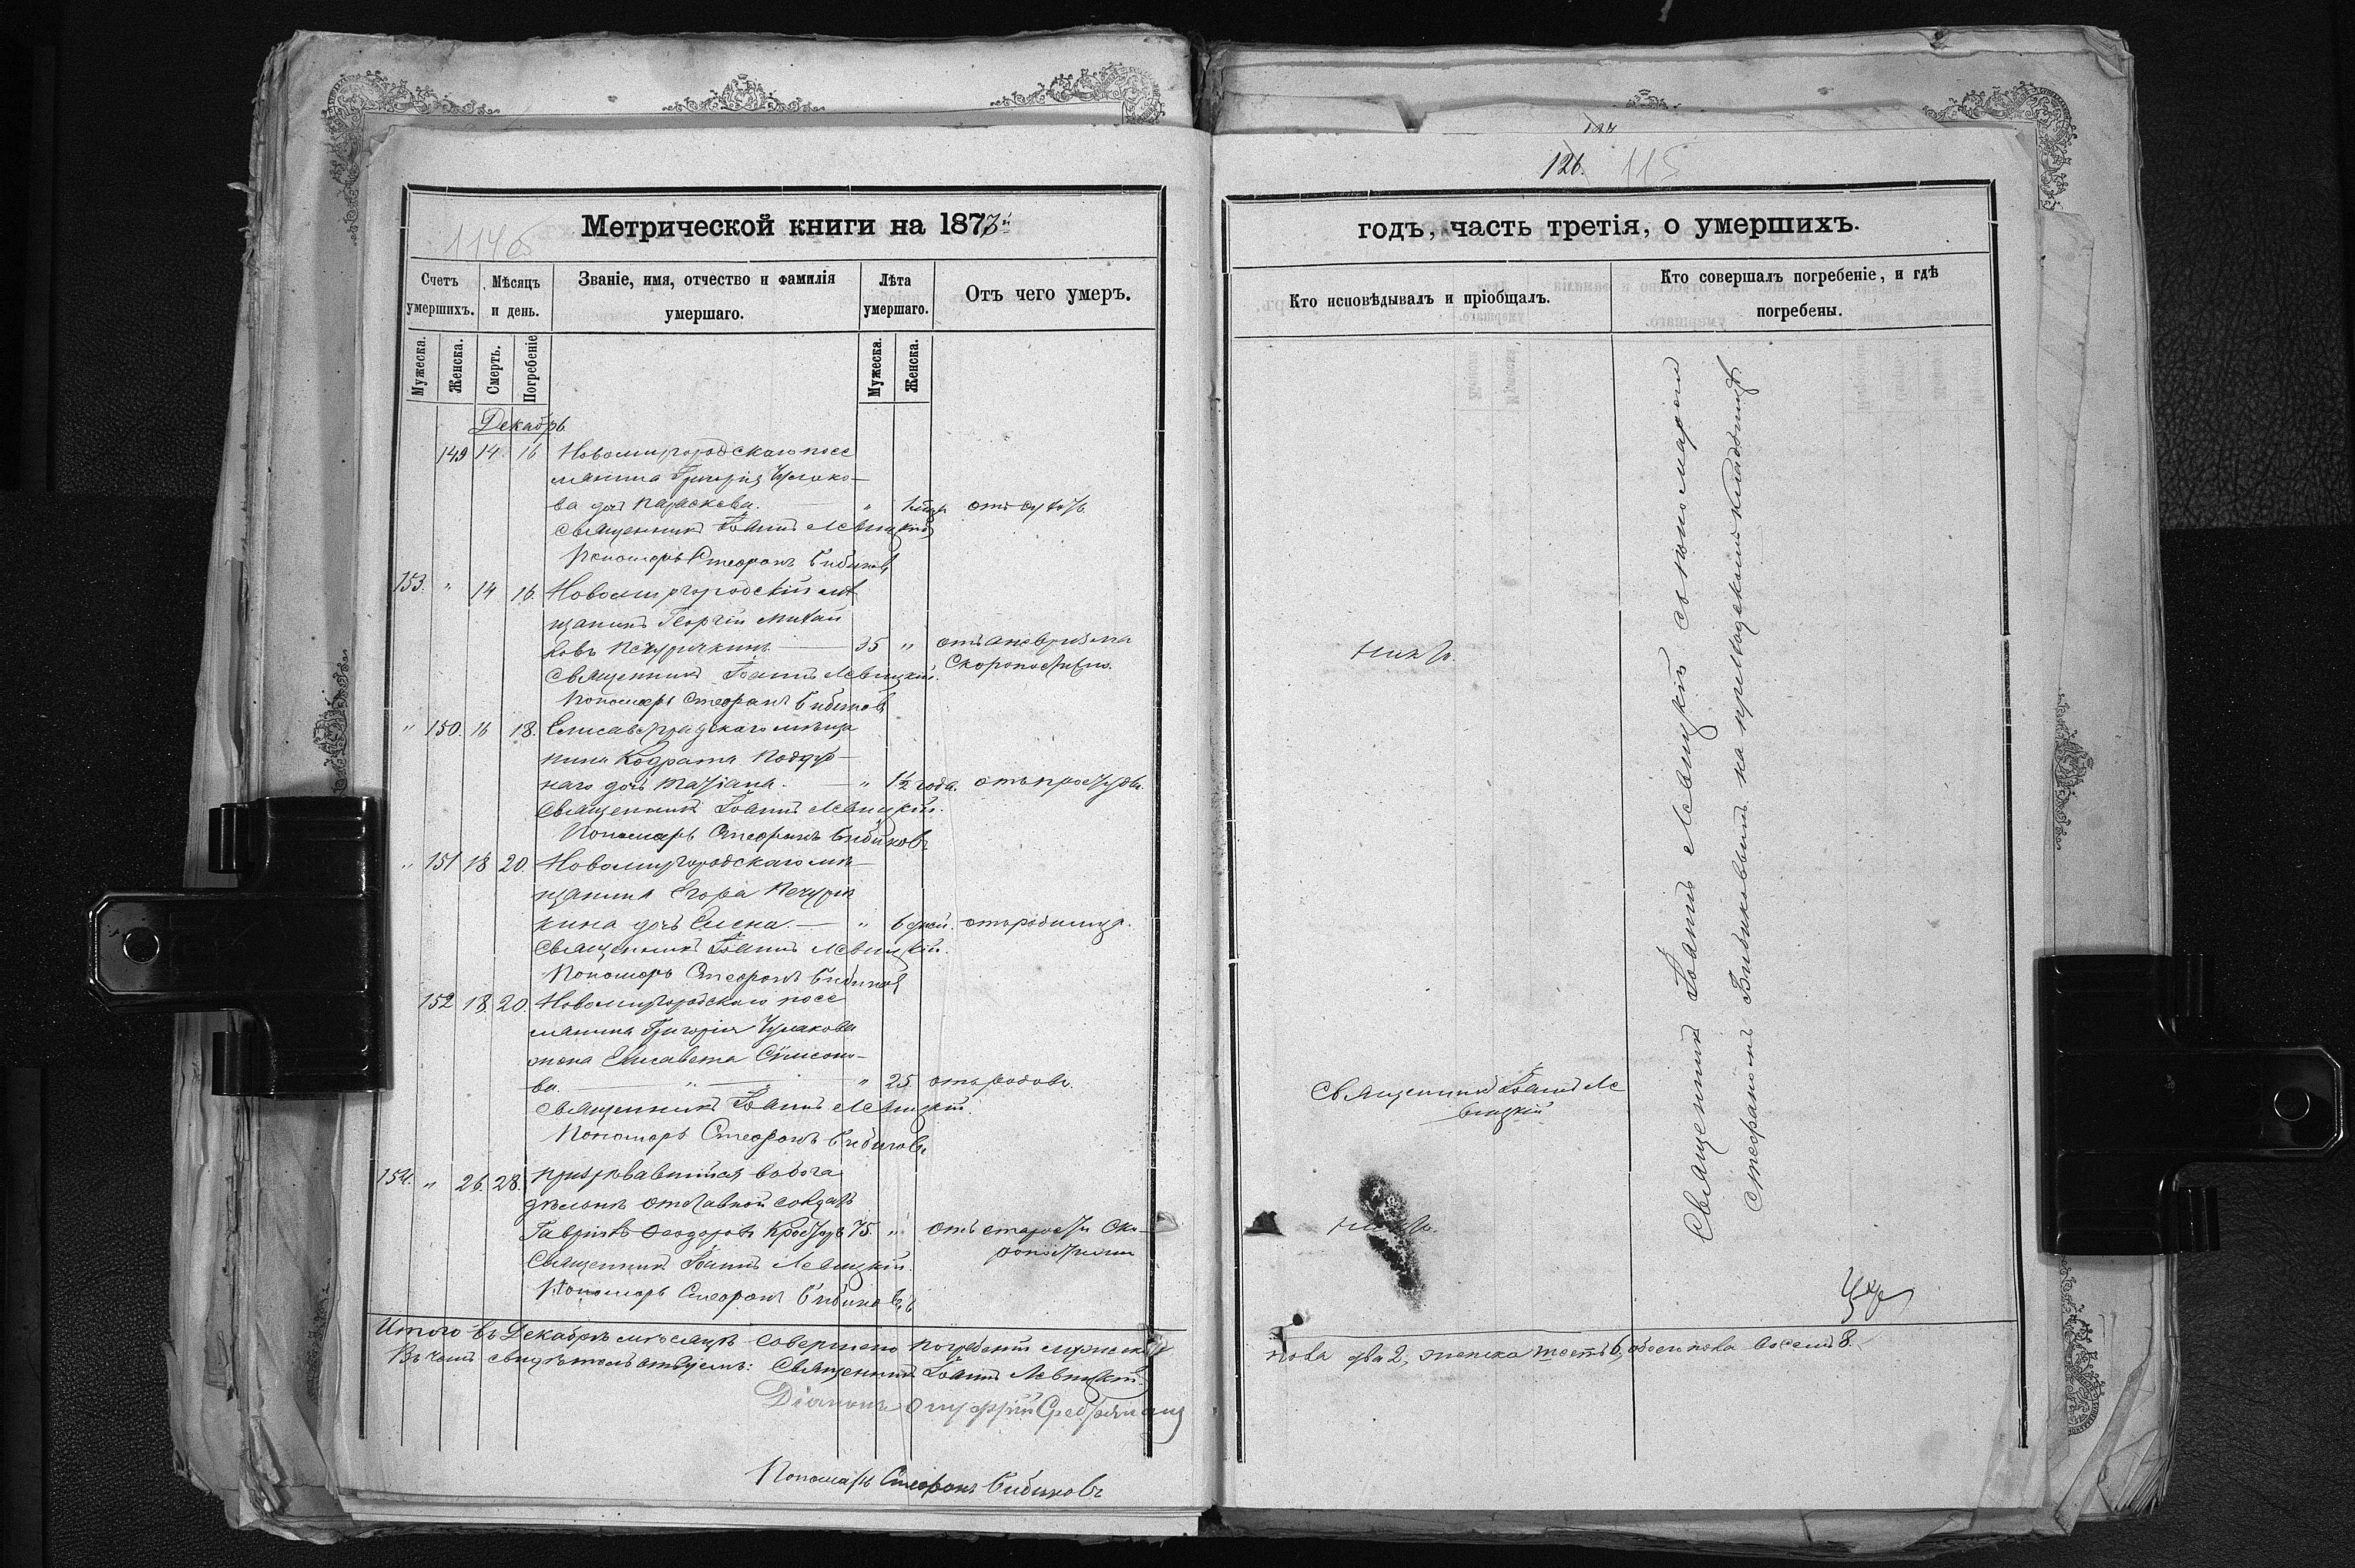 126. 115
Метрической книги на 1873й
годъ, часть третія, о умершихъ.
Счетъ умершихъ.
Мѣсяцъ и день.
Званіе, имя, отчество и фамилія умершаго.
Лѣта умершаго.
Отъ чего умеръ.
Кто исповѣдывалъ и пріобщалъ.
Кто совершалъ погребеніе, и гдѣ погребены.
Мужеска.
Женска.
Смерть.
Погребеніе
Мужеска.
Женска.
Декабрь
149 14 16 Новомиргородскаго посе
лянина Григорія Чумако-
ва дочь Параскева. "
Священникъ Іоаннъ Левицкій
Пономарь Стефанъ Бибиковъ
153. " 14 16. Новомиргородскій мѣ
щанинъ Георгій Михай
ловъ Печуричкинъ 35 " отъ аневризма
Скоропостижно.
Никто.
Священникъ Іоаннъ Левицкій.
Пономарь Стефанъ Бибиковъ
" 150. 16 18. Елисаветградскаго мѣща
нина Кодрата
наго дочь Татіана. " 1½ года. отъ простуды.
Священникъ Іоаннъ Левицкій.
Пономарь Стефанъ Бибиковъ
" 151 18 20. Новомиргородскаго мѣ-
щанина Егора Печурич
кина дочь Елена. " 6 дней. отъ родимца.
Священникъ Іоаннъ Левицкій.
Пономарь Стефанъ Бибиковъ
152 18. 20. Новомиргородскаго посе
лянина Григорія Чумакова
жена Елисавета Симоно-
ва. " " 25. отъ родовъ.
Священникъ Іоаннъ Ле
вицкій
Священникъ Іоаннъ Левицкій.
Пономарь Стефанъ Бибиковъ
154. " 26. 28. Призрѣвавшійся въ бога
дѣльнѣ отставной солдатъ
Гавріилъ Феодоровъ 75. " Отъ старости Ско-
ропостижно
Никто.
Священникъ Іоаннъ Левицкій.
Пономарь Стефанъ Бибиковъ
Священникъ Іоаннъ Левицкій съ пономаремъ
Стефаномъ Бибиковымъ на приходскомъ кладбищѣ
Итого въ Декабрѣ мѣсяцѣ совершено погребеній мужеска
пола два 2, женска шесть 6, обоего пола восемь 8.
Въ чемъ свидѣтельствуемъ: Священникъ Іоаннъ Левицкій.
Діаконъ Онуфрій
Пономарь Стефанъ Бибиковъ